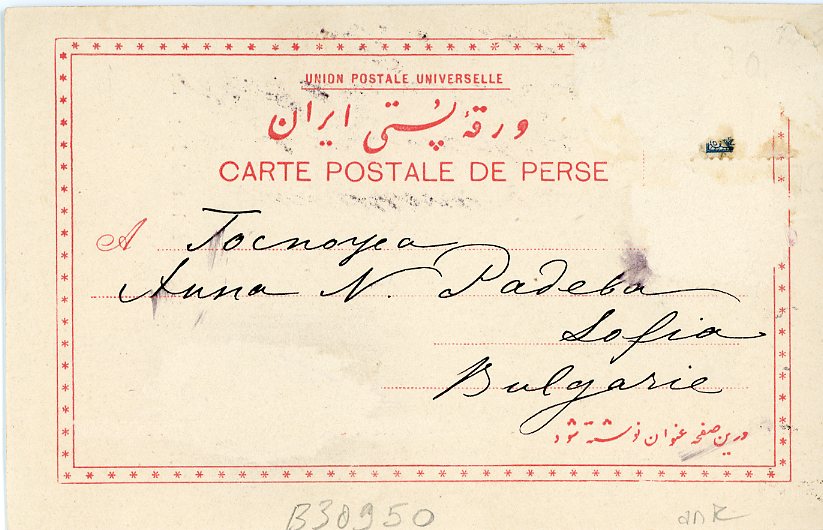 UNION POSTALE UNIVERSELLE
ورقهٔ پستی ایران
CARTE POSTALE DE PERSE
A Госпожа
Anna N. Radeва
Sofia
Bulgarie
درین صفحه عنوان نوشته شود
B30950